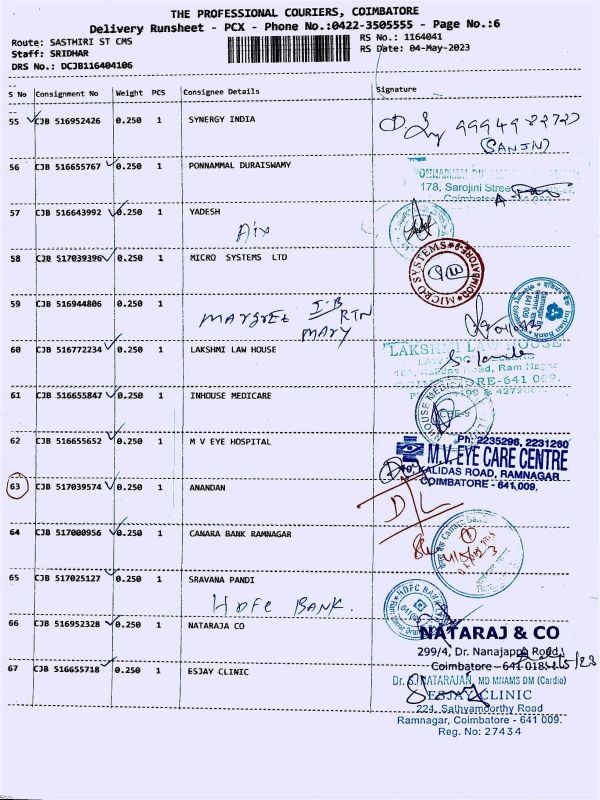 THE PROFESSIONAL COURIERS, COIMBATORE
Delivery Runsheet - PCX - Phone No.:0422-3505555 - Page No.:6
Route: SASTHIRI ST CMS
Staff: SRIDHAR
DRS No.: DCJB116404106
RS No.: 1164041
RS Date: 04-May-2023
S No Consignment No Weight PCS Consignee Details Signature
55 CJB 516952426 0.250 1 SYNERGY INDIA
(SANJN)
56 CJB 516655767 0.250 1 PONNAMMAL DURAISWAMY
178, Sarojini Street
57 CJB 516643992 0.250 1 YADESH
58 CJB 517039396 0.250 1 MICRO SYSTEMS LTD
MICRO SYSTEMS COIMBATORE-9
59 CJB 516944806 0.250 1
I-B
RTN
MARY
Indian Bank
641 009
60 CJB 516772234 0.250 1 LAKSHMI LAW HOUSE
LAKSHMI LAW HOUSE
Kalidas Road, Ram Nagar
COIMBATORE-641 009.
61 CJB 516655847 0.250 1 INHOUSE MEDICARE
INHOUSE MEDICARE
62 CJB 516655652 0.250 1 M V EYE HOSPITAL
Ph: 2235296, 2231260
M.V. EYE CARE CENTRE
KALIDAS ROAD, RAMNAGAR
COIMBATORE - 641 009.
63 CJB 517039574 0.250 1 ANANDAN
D/L
64 CJB 517000956 0.250 1 CANARA BANK RAMNAGAR
Canara Bank
65 CJB 517025127 0.250 1 SRAVANA PANDI
HDFC BANK.
HDFC BANK
66 CJB 516952328 0.250 1 NATARAJA CO
NATARAJ & CO
299/4, Dr. Nanajappa Road
Coimbatore - 641 018
67 CJB 516655718 0.250 1 ESJAY CLINIC
Dr. S. NATARAJAN, MD MNAMS DM (Cardio)
ESJAY CLINIC
224, Sathyamoorthy Road
Ramnagar, Coimbatore - 641 009.
Reg. No: 27434